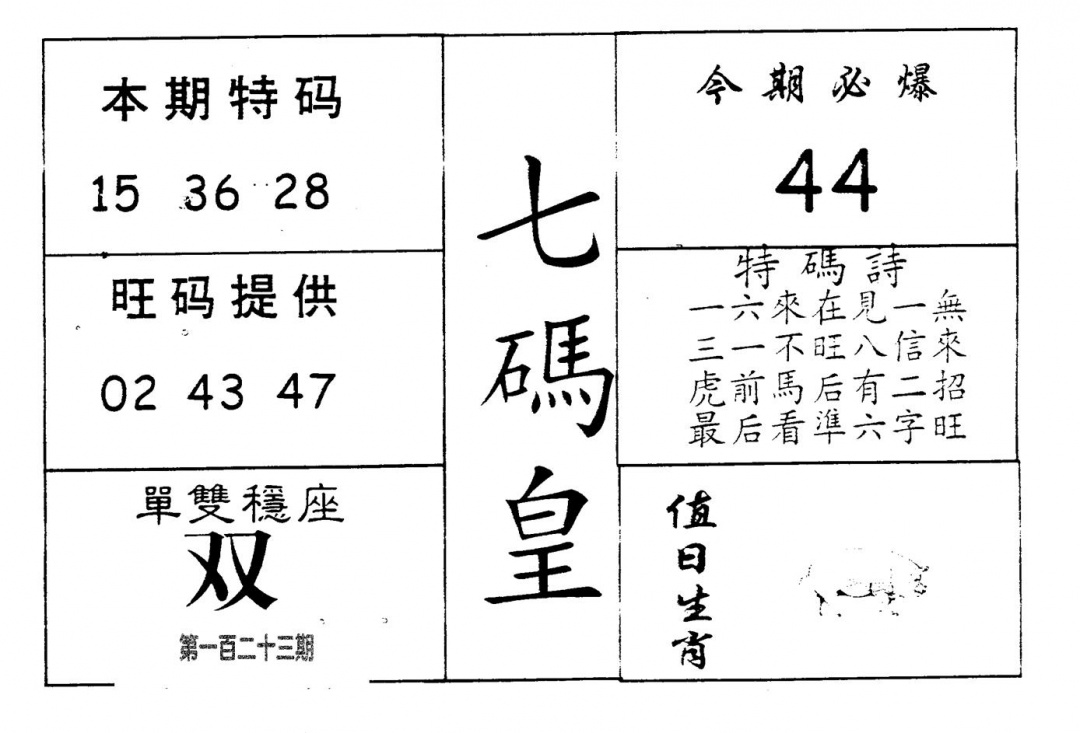 本期特码
15 36 28
旺码提供
02 43 47
單雙穩座
双
第一百二十三期
七碼皇
今期必爆
44
特碼詩
一六來在見一無
三一不旺八信來
虎前馬后有二招
最后看準六字旺
值日生肖